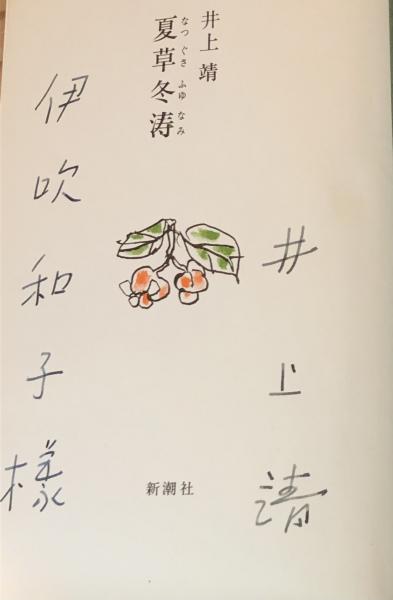 井上靖
夏草冬涛
なつぐさふゆなみ
井上靖
伊吹和子様
新潮社